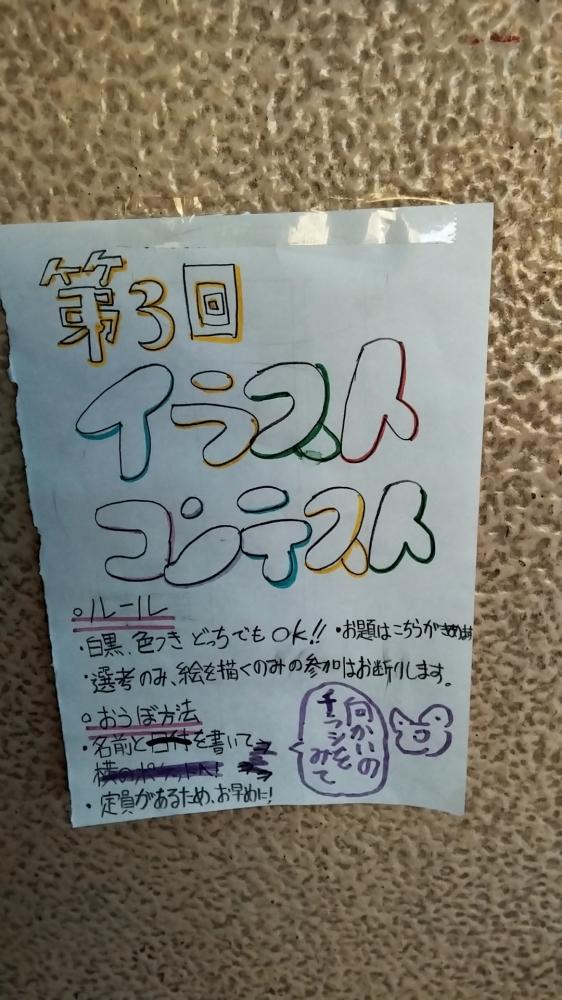 第3回
イラスト
コンテスト
○ルール
・白黒、色つき どっちでも OK!! ・お題はこちらがきめます
・選考のみ、絵を描くのみの参加はお断りします。
○おうぼ方法
・名前と日付を書いて
横のポケットへ!
・定員があるため、お早めに!
向かいの
チラシを
みて